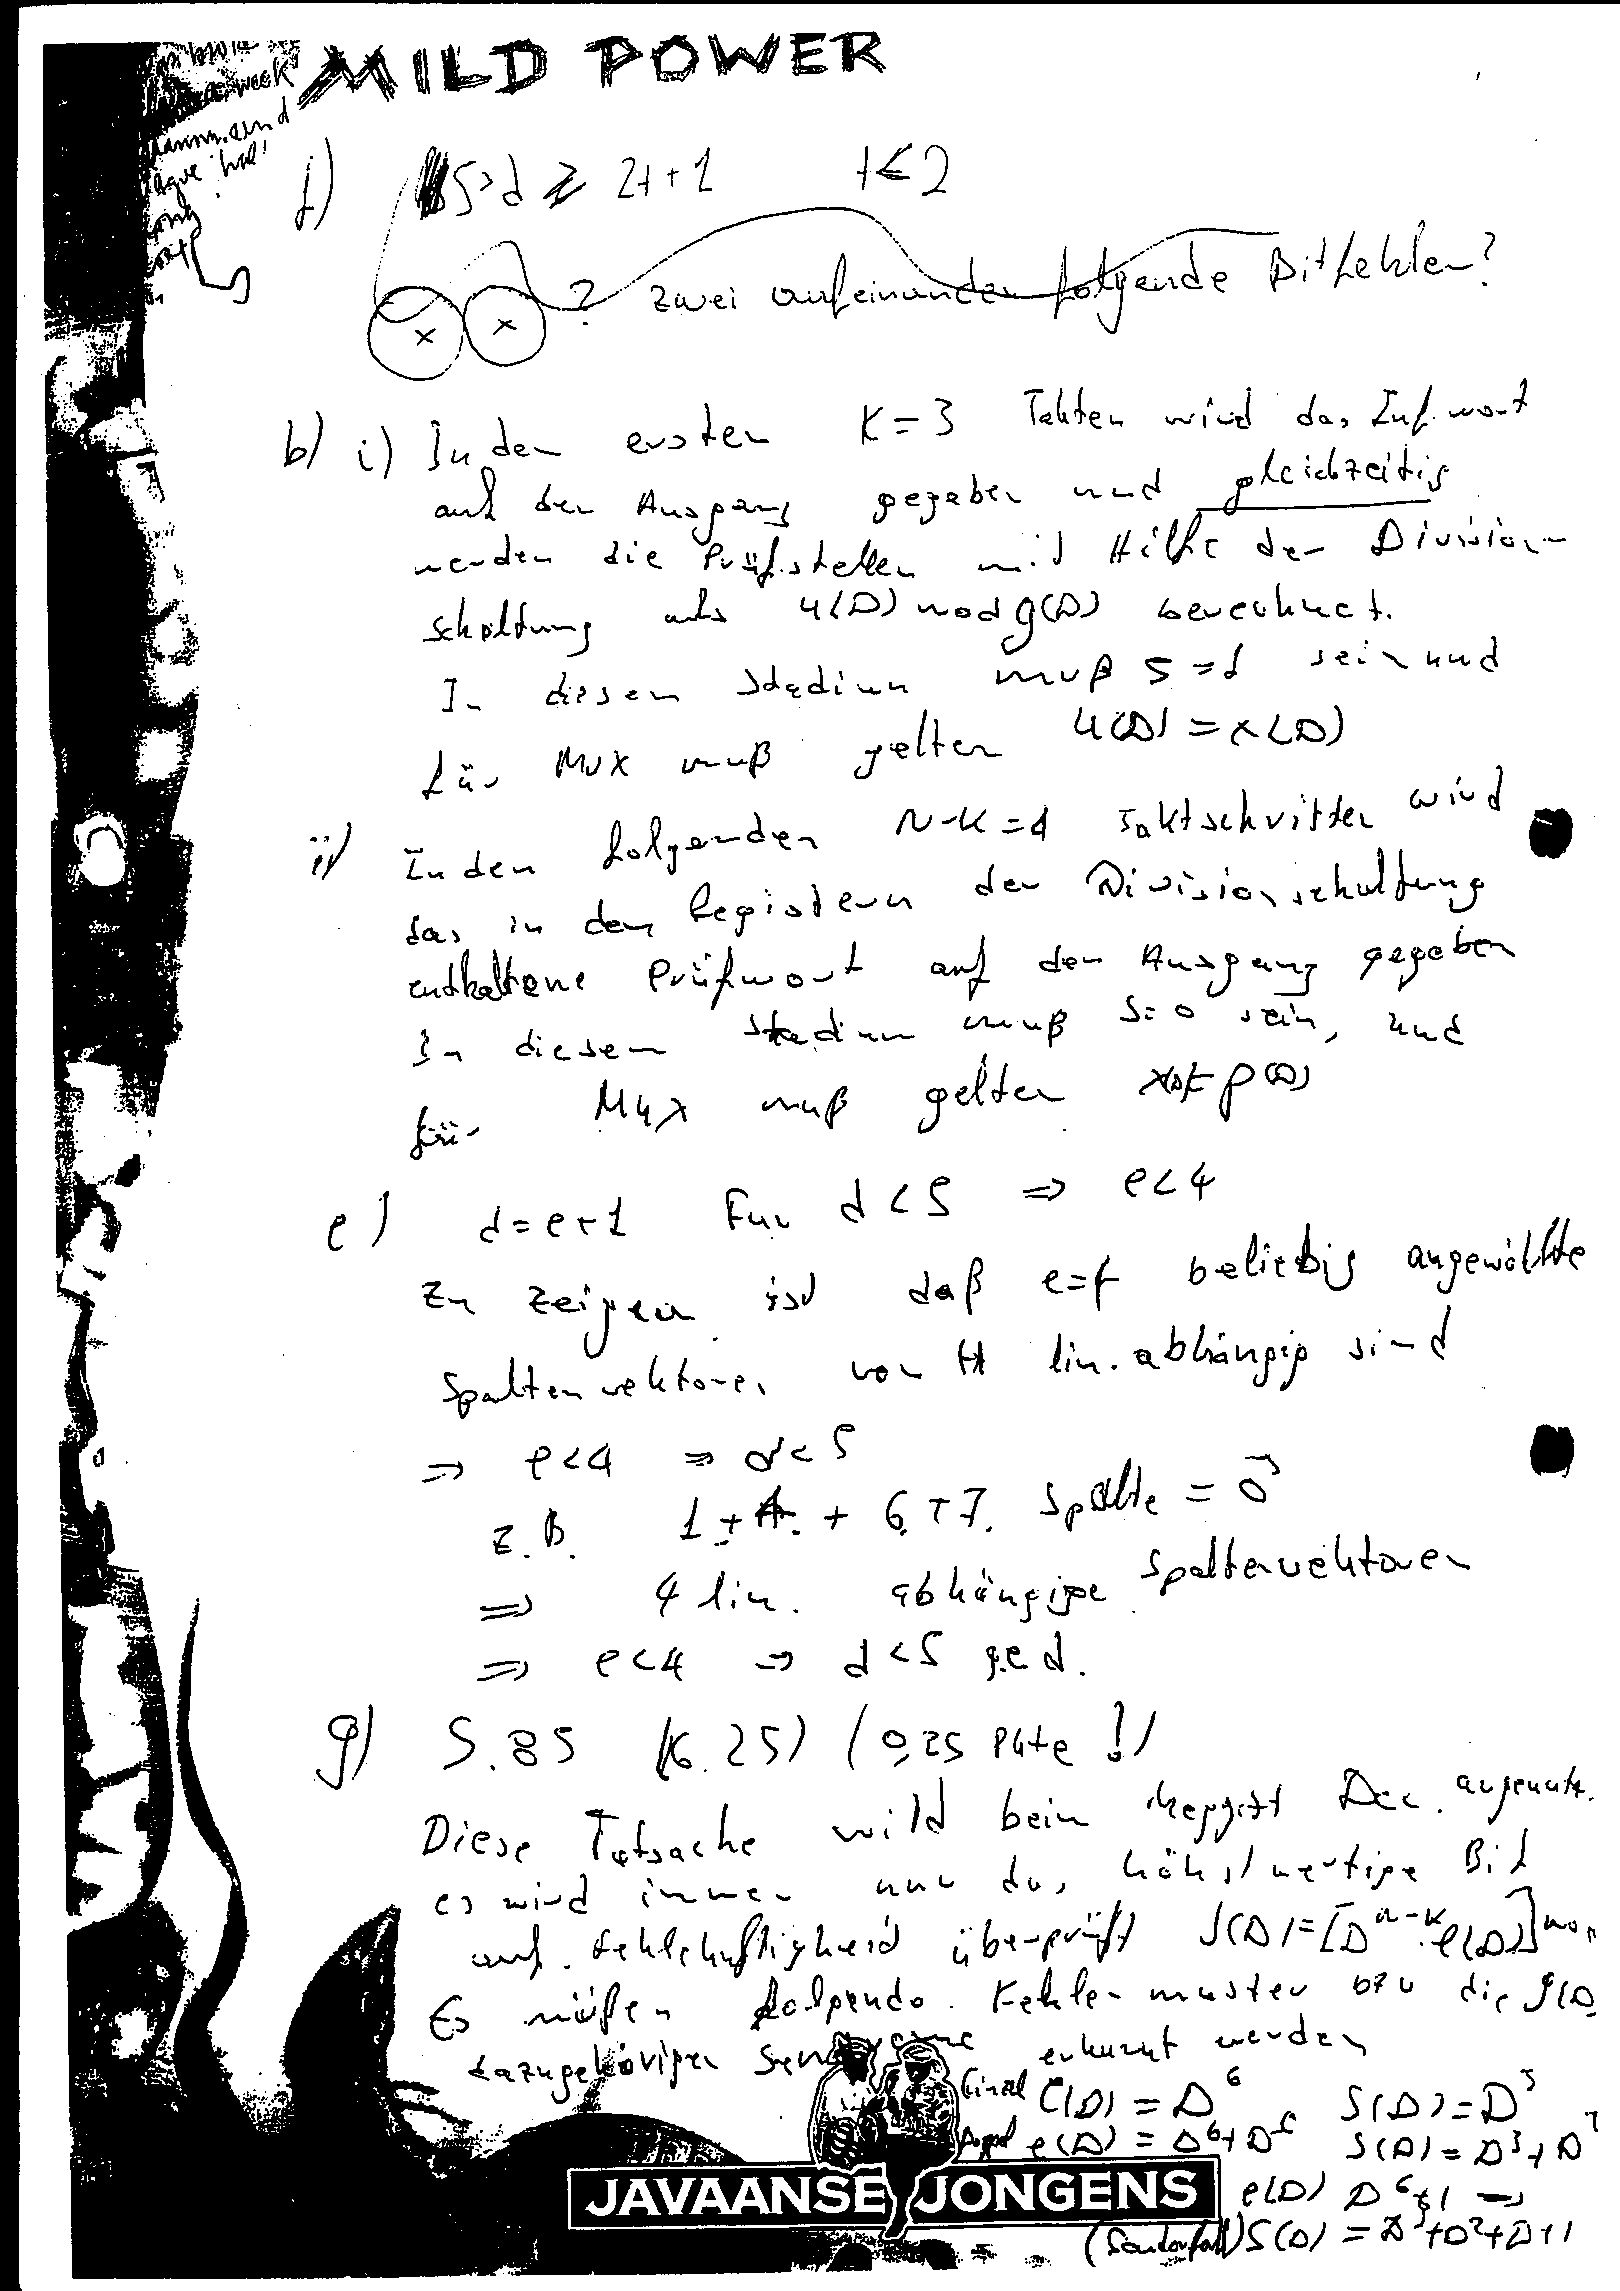 MILD POWER
f) 5>d ≥ 2t+1 t<2
? zwei aufeinander folgende Bitfehler?
b) i) In den ersten K=3 Takten wird das Inf.wort
auf den Ausgang gegeben und gleichzeitig
werden die Prüfstellen mit Hilfe der Division-
schaltung als u(D) mod g(D) berechnet.
In diesem Stadium muß S=1 sein und
für MUX muß gelten u(D) = x(D)
ii) In den folgenden N-K=4 Taktschritten wird
das in den Registern der Divisionschaltung
enthaltene Prüfwort auf den Ausgang gegeben
In diesem Stadium muß S=0 sein, und
für Mux muß gelten p(D)
e) d=e+1 Für d<5 ⇒ e<4
Zu zeigen ist daß e=4 beliebig angewählte
Spaltenvektoren von H lin. abhängig sind
⇒ e<4 ⇒ d<5
z.B. 1.+4.+6.+7. Spalte = 0⃗
⇒ 4 lin. abhängige Spaltenvektoren
⇒ e<4 → d<5 q.e.d.
g) S.85 (6.25) (0,25 Pkte!)
Diese Tatsache wird beim Meggitt Dec.
es wird immer nur das höchstwertige Bit
auf Fehlerhaftigkeit überprüft S(D)=[D^n-k·e(D)]mod
Es müßen folgende Fehlermuster bzw die g(D)
dazugehörigen Syndrome erkannt werden
Einzel e(D) = D^6 S(D)=D^3
e(D) = D^6+D^5 S(D)=D^3+D^2
e(D) D^6+1 →
(Sonderfall) S(D) = D^3+D^2+D+1
JAVAANSE JONGENS